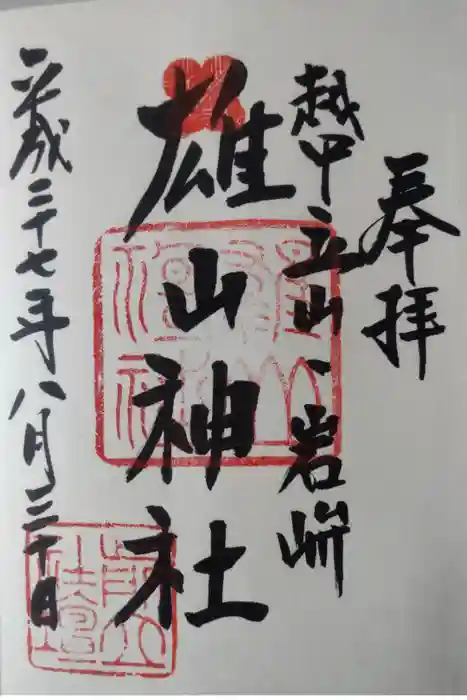 奉拝
越中立山・岩峅
雄山神社
平成二十七年八月二十日